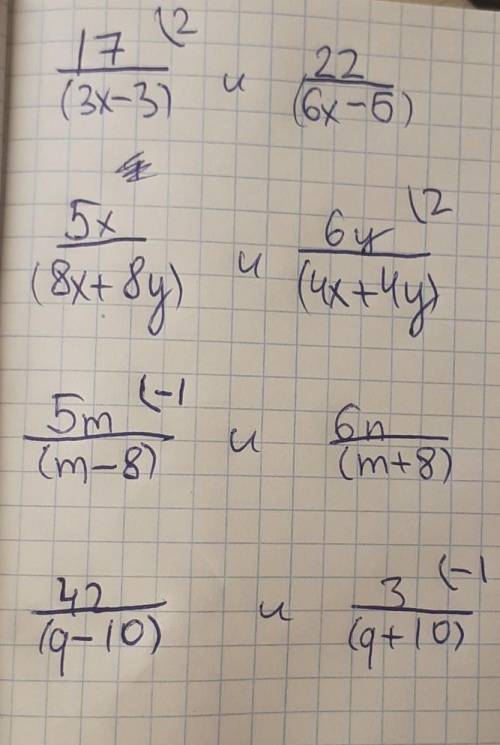 17 \2
(3x-3) и 22
(6x-6)
5x
(8x+8y) и 6y \2
(4x+4y)
5m (-1
(m-8) и 6n
(m+8)
42
(q-10) и 3 (-1
(q+10)